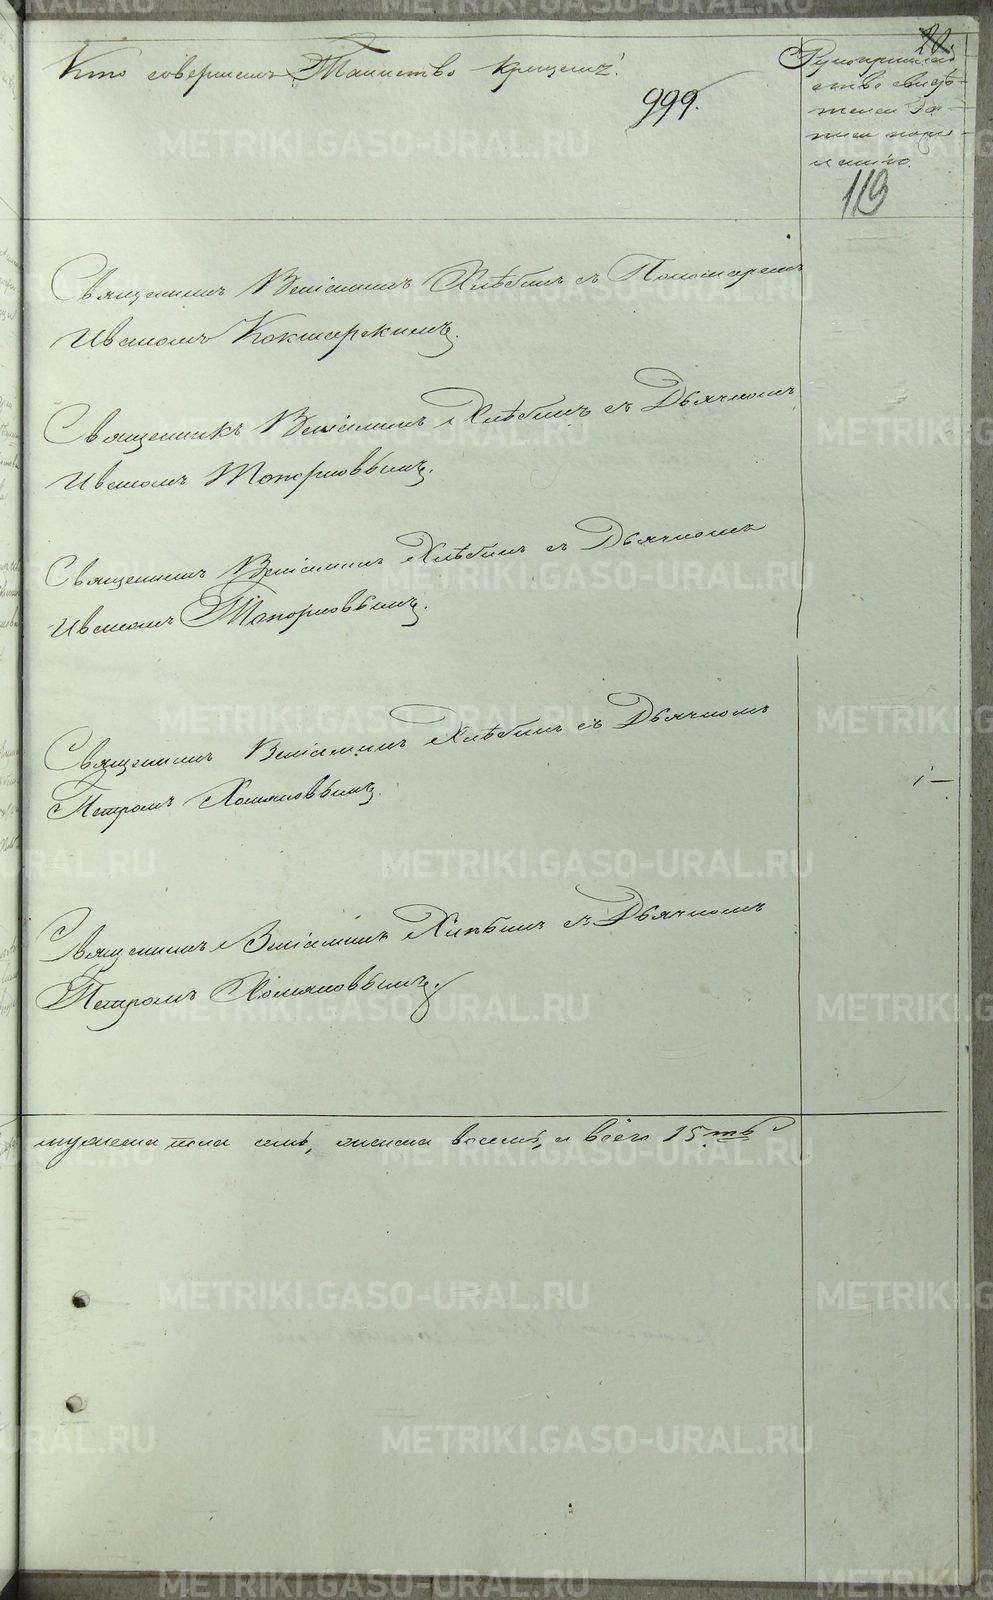 20.
Кто совершалъ Таинство крещенія.
999.
Рукоприклад
ство свидѣ-
телей за-
писи по же-
ланію.
113
Священникъ Веніаминъ Хлѣбинъ съ Пономаремъ
Иваномъ Кокшарскимъ.
Священникъ Веніаминъ Хлѣбинъ съ Дьячкомъ
Иваномъ Топорковымъ.
Священникъ Веніаминъ Хлѣбинъ съ Дьячкомъ
Иваномъ Топорковымъ.
Священникъ Веніаминъ Хлѣбинъ съ Дьячкомъ
Петромъ Хомяковымъ.
Священникъ Веніаминъ Хлѣбинъ съ Дьячкомъ
Петромъ Хомяковымъ.
мужеска пола семь, женска восемь, и всего 15.ть
METRIKI.GASO-URAL.RU